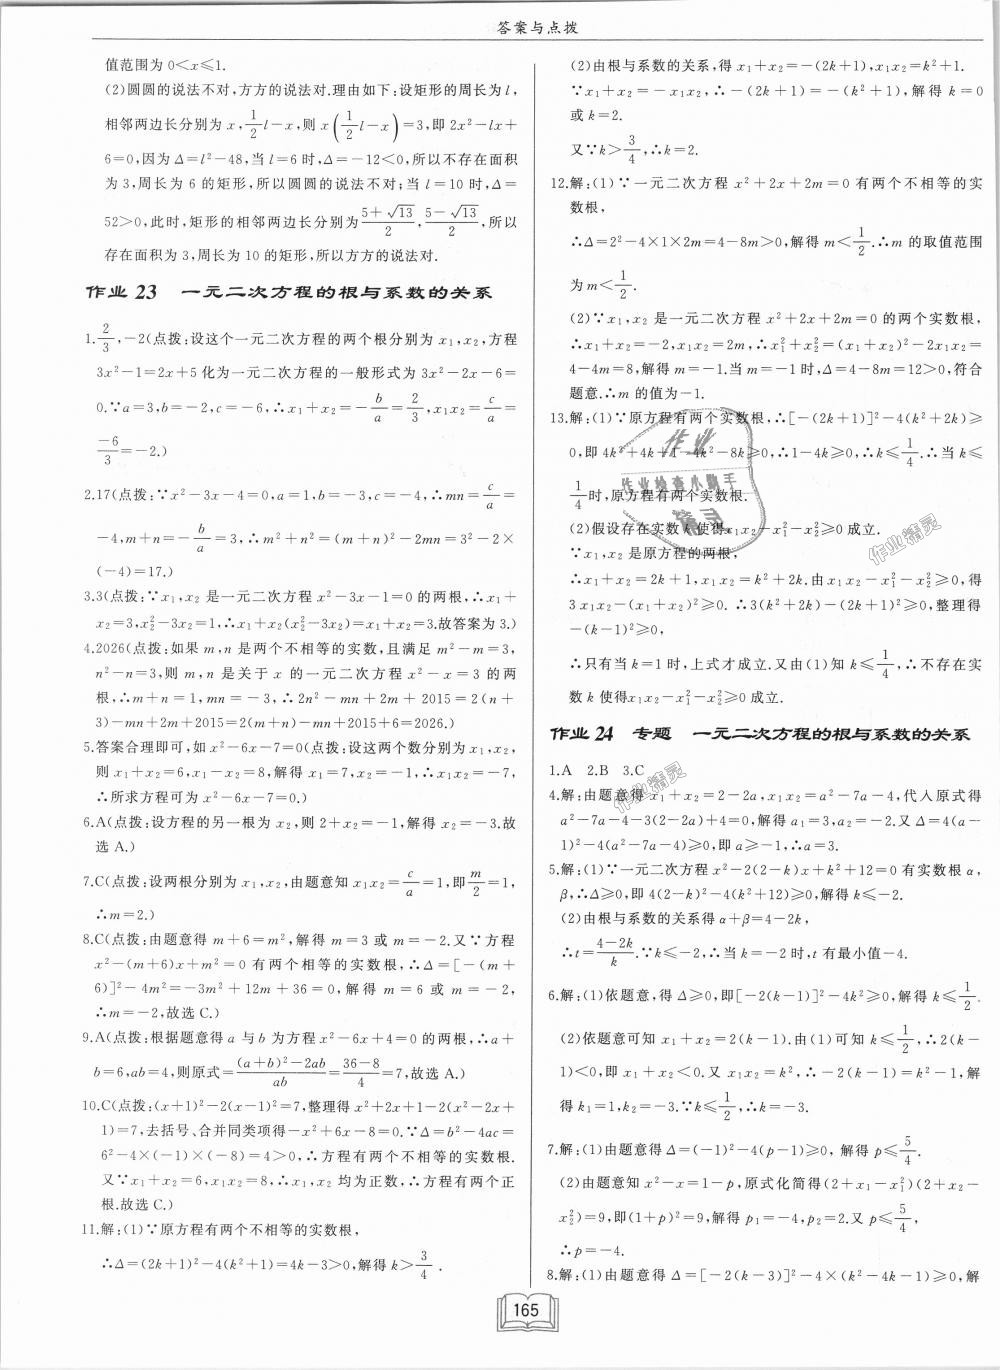 答案与点拨
值范围为 0<x≤1.
(2)圆圆的说法不对,方方的说法对.理由如下:设矩形的周长为 l,
相邻两边长分别为 x,1/2 l-x,则 x(1/2 l-x)=3,即 2x²-lx+
6=0,因为 Δ=l²-48,当 l=6 时,Δ=-12<0,所以不存在面积
为 3,周长为 6 的矩形,所以圆圆的说法不对;当 l=10 时,Δ=
52>0,此时,矩形的相邻两边长分别为(5+√13)/2,(5-√13)/2,所以
存在面积为 3,周长为 10 的矩形,所以方方的说法对.
作业 23 一元二次方程的根与系数的关系
1.2/3,-2(点拨:设这个一元二次方程的两个根分别为 x₁,x₂,方程
3x²-1=2x+5 化为一元二次方程的一般形式为 3x²-2x-6=
0.∵a=3,b=-2,c=-6,∴x₁+x₂=-b/a=2/3,x₁x₂=c/a=
-6/3=-2.)
2.17(点拨:∵x²-3x-4=0,a=1,b=-3,c=-4,∴mn=c/a=
-4,m+n=-b/a=3,∴m²+n²=(m+n)²-2mn=3²-2×
(-4)=17.)
3.3(点拨:∵x₁,x₂ 是一元二次方程 x²-3x-1=0 的两根,∴x₁+
x₂=3,x₂²-3x₂=1,∴x₁+x₂(x₂²-3x₂)=x₁+x₂=3.故答案为 3.)
4.2026(点拨:如果 m,n 是两个不相等的实数,且满足 m²-m=3,
n²-n=3,则 m,n 是关于 x 的一元二次方程 x²-x=3 的两
根,∴m+n=1,mn=-3,∴2n²-mn+2m+2015=2(n+
3)-mn+2m+2015=2(m+n)-mn+2015+6=2026.)
5.答案合理即可,如 x²-6x-7=0(点拨:设这两个数分别为 x₁,x₂,
则 x₁+x₂=6,x₁-x₂=8,解得 x₁=7,x₂=-1,∴x₁x₂=-7,
∴所求方程可为 x²-6x-7=0.)
6.A(点拨:设方程的另一根为 x₂,则 2+x₂=-1,解得 x₂=-3.故
选 A.)
7.C(点拨:设两根分别为 x₁,x₂,由题意知 x₁x₂=c/a=1,即m/2=1,
∴m=2.)
8.C(点拨:由题意得 m+6=m²,解得 m=3 或 m=-2.又∵方程
x²-(m+6)x+m²=0 有两个相等的实数根,∴Δ=[-(m+
6)]²-4m²=-3m²+12m+36=0,解得 m=6 或 m=-2,
∴m=-2,故选 C.)
9.A(点拨:根据题意得 a 与 b 为方程 x²-6x+4=0 的两根,∴a+
b=6,ab=4,则原式=((a+b)²-2ab)/ab=(36-8)/4=7,故选 A.)
10.C(点拨:(x+1)²-2(x-1)²=7,整理得 x²+2x+1-2(x²-2x+
1)=7,去括号、合并同类项得-x²+6x-8=0.∵Δ=b²-4ac=
6²-4×(-1)×(-8)=4>0,∴方程有两个不相等的实数根.
又∵x₁+x₂=6,x₁x₂=8,∴x₁,x₂ 均为正数,∴方程有两个正
根.故选 C.)
11.解:(1)∵原方程有两个不相等的实数根,
∴Δ=(2k+1)²-4(k²+1)=4k-3>0,解得 k>3/4.
(2)由根与系数的关系,得 x₁+x₂=-(2k+1),x₁x₂=k²+1.
∵x₁+x₂=-x₁x₂,∴-(2k+1)=-(k²+1),解得 k=0
或 k=2.
又∵k>3/4,∴k=2.
12.解:(1)∵一元二次方程 x²+2x+2m=0 有两个不相等的实
数根,
∴Δ=2²-4×1×2m=4-8m>0,解得 m<1/2.∴m 的取值范围
为 m<1/2.
(2)∵x₁,x₂ 是一元二次方程 x²+2x+2m=0 的两个实数根,
∴x₁+x₂=-2,x₁x₂=2m,∴x₁²+x₂²=(x₁+x₂)²-2x₁x₂=
4-4m=8,解得 m=-1.当 m=-1 时,Δ=4-8m=12>0,符合
题意.∴m 的值为-1.
13.解:(1)∵原方程有两个实数根,∴[-(2k+1)]²-4(k²+2k)≥
0,即 4k²+4k+1-4k²-8k≥0,∴1-4k≥0,∴k≤1/4.∴当 k≤
1/4时,原方程有两个实数根.
(2)假设存在实数 k 使得x₁x₂-x₁²-x₂²≥0 成立.
∵x₁,x₂ 是原方程的两根,
∴x₁+x₂=2k+1,x₁x₂=k²+2k.由x₁x₂-x₁²-x₂²≥0,得
3x₁x₂-(x₁+x₂)²≥0.∴3(k²+2k)-(2k+1)²≥0,整理得
-(k-1)²≥0,
∴只有当 k=1 时,上式才成立.又由(1)知 k≤1/4,∴不存在实
数 k 使得x₁x₂-x₁²-x₂²≥0 成立.
作业 24 专题 一元二次方程的根与系数的关系
1.A 2.B 3.C
4.解:由题意得 x₁+x₂=2-2a,x₁x₂=a²-7a-4,代入原式得
a²-7a-4-3(2-2a)+4=0,解得 a₁=3,a₂=-2.又 Δ=4(a-
1)²-4(a²-7a-4)≥0,即 a≥-1,∴a=3.
5.解:(1)∵一元二次方程 x²-2(2-k)x+k²+12=0 有实数根 α,
β,∴Δ≥0,即 4(2-k)²-4(k²+12)≥0,解得 k≤-2.
(2)由根与系数的关系得 α+β=4-2k,
∴t=(4-2k)/k.∵k≤-2,∴当 k=-2 时,t 有最小值-4.
6.解:(1)依题意,得 Δ≥0,即[-2(k-1)]²-4k²≥0,解得 k≤1/2.
(2)依题意可知 x₁+x₂=2(k-1).由(1)可知 k≤1/2,∴2(k-
1)<0,即 x₁+x₂<0.又 x₁x₂=k²,∴-2(k-1)=k²-1,解
得 k₁=1,k₂=-3.∵k≤1/2,∴k=-3.
7.解:(1)由题意得 Δ=(-1)²-4(p-1)≥0,解得 p≤5/4.
(2)由题意知 x²-x=1-p,原式化简得(2+x₁-x₁²)(2+x₂-
x₂²)=9,即(1+p)²=9,解得 p₁=-4,p₂=2.又 p≤5/4,
∴p=-4.
8.解:(1)由题意得 Δ=[-2(k-3)]²-4×(k²-4k-1)≥0,解
165
作业
作业检查小助手
精灵
作业精灵
作业精灵